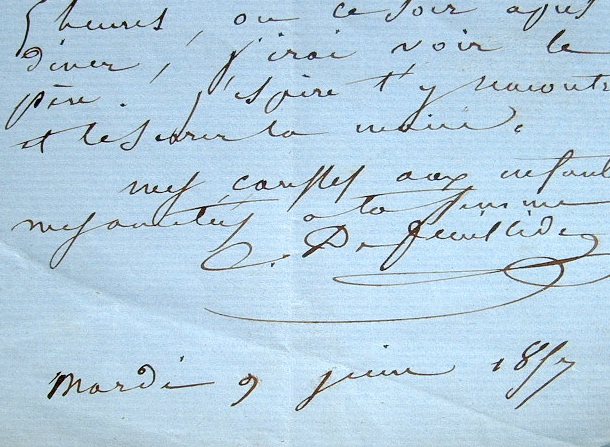 5 heures, ou ce soir après
diner, j'irai voir le
père. J'espère t'y rencontr
et te serrer la main.
mes caresses aux enfants
mes amitiés à ta femme
C. De feuillide
Mardi 9 juin 1857